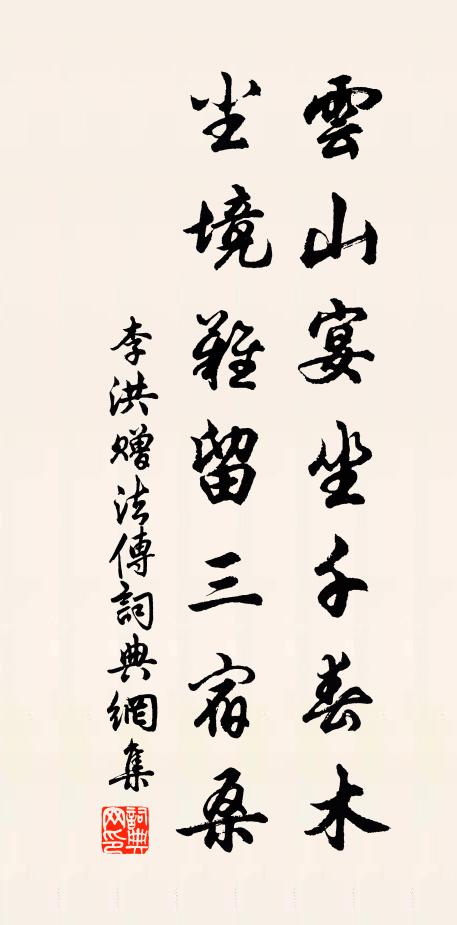 雲山宴坐千春木
尘境難留三宿桑
李洪赠法傳詞典網集
詞典网印